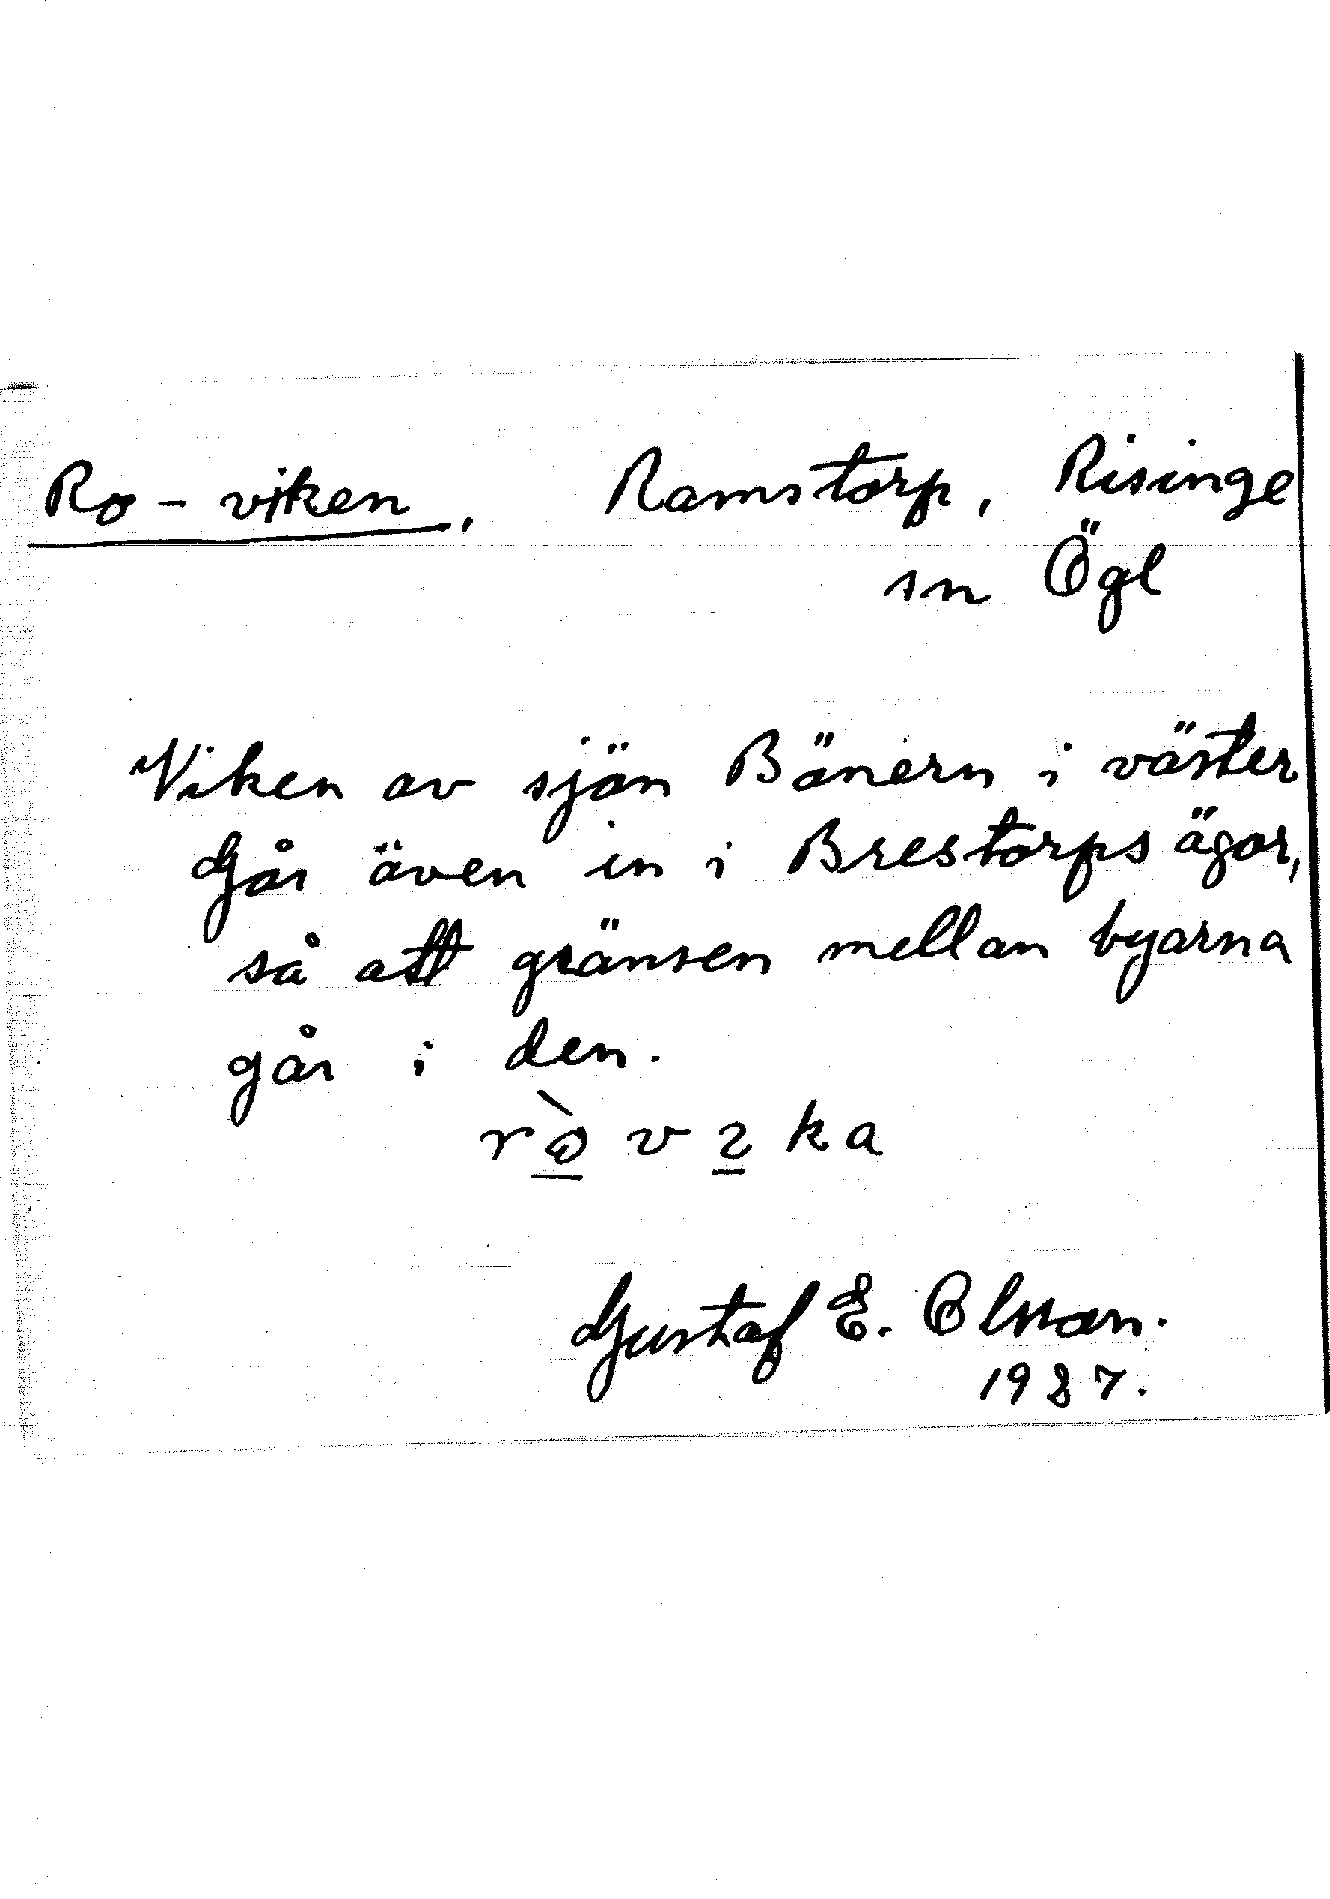 Ro-viken, Ramstorp, Risinge
sn Ögl
Viken av sjön Bönern i väster
Går även in i Brestorps ägor,
så att gränsen mellan byarna
går i den.
Gustaf E. Olsson.
1987.